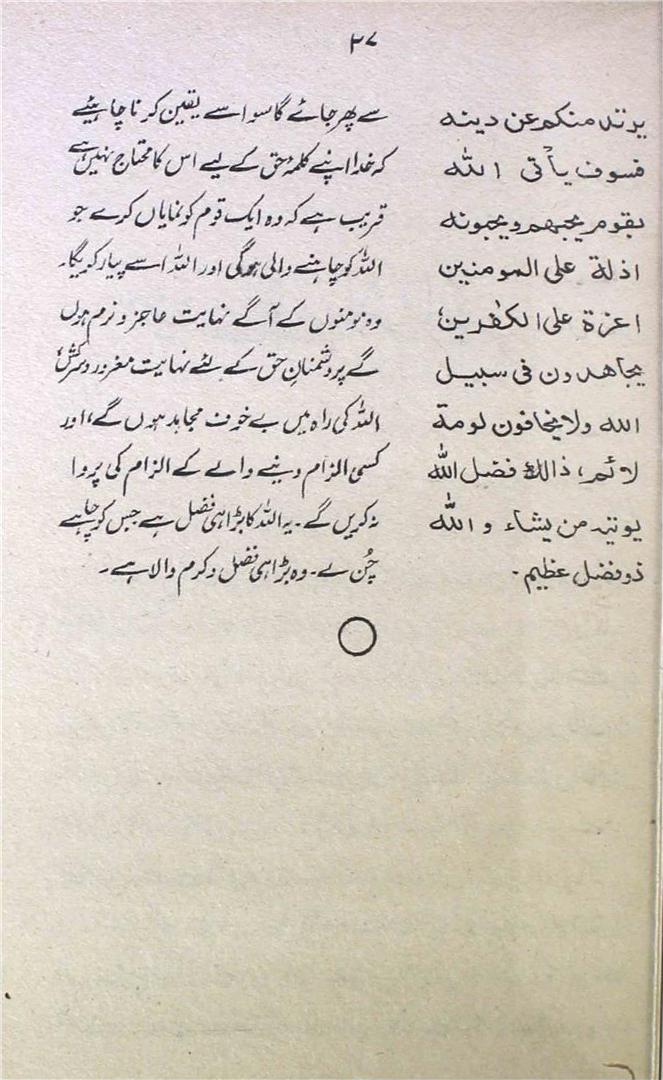 ۳۷
یرتد منکم عن دینہ
فسوف یأتی اللہ
بقوم یحبهم ویحبونہ
اذلة علی المومنین
اعزة علی الکفرین
یجاهدون فی سبیل
اللہ ولا یخافون لومة
لائم، ذالك فضل اللہ
یوتیہ من یشاء واللہ
ذوفضل عظیم۔
سے پھر جائے گا سو اسے یقین کرنا چاہیئے
کہ خدا اپنے کلمۂ حق کے لیے اس کا محتاج نہیں ہے
قریب ہے کہ وہ ایک قوم کو نمایاں کرے جو
اللہ کو چاہنے والی ہوگی اور اللہ اسے پیار کریگا۔
وہ مومنوں کے آگے نہایت عاجز و نرم ہوں
گے پر دشمنانِ حق کے لئے نہایت مغرور و سرکش،
اللہ کی راہ میں بے خوف مجاہد ہوں گے، اور
کسی الزام دینے والے کے الزام کی پروا
نہ کریں گے۔ یہ اللہ کا بڑا ہی فضل ہے جس کو چاہے
چُن لے۔ وہ بڑا ہی فضل و کرم والا ہے۔